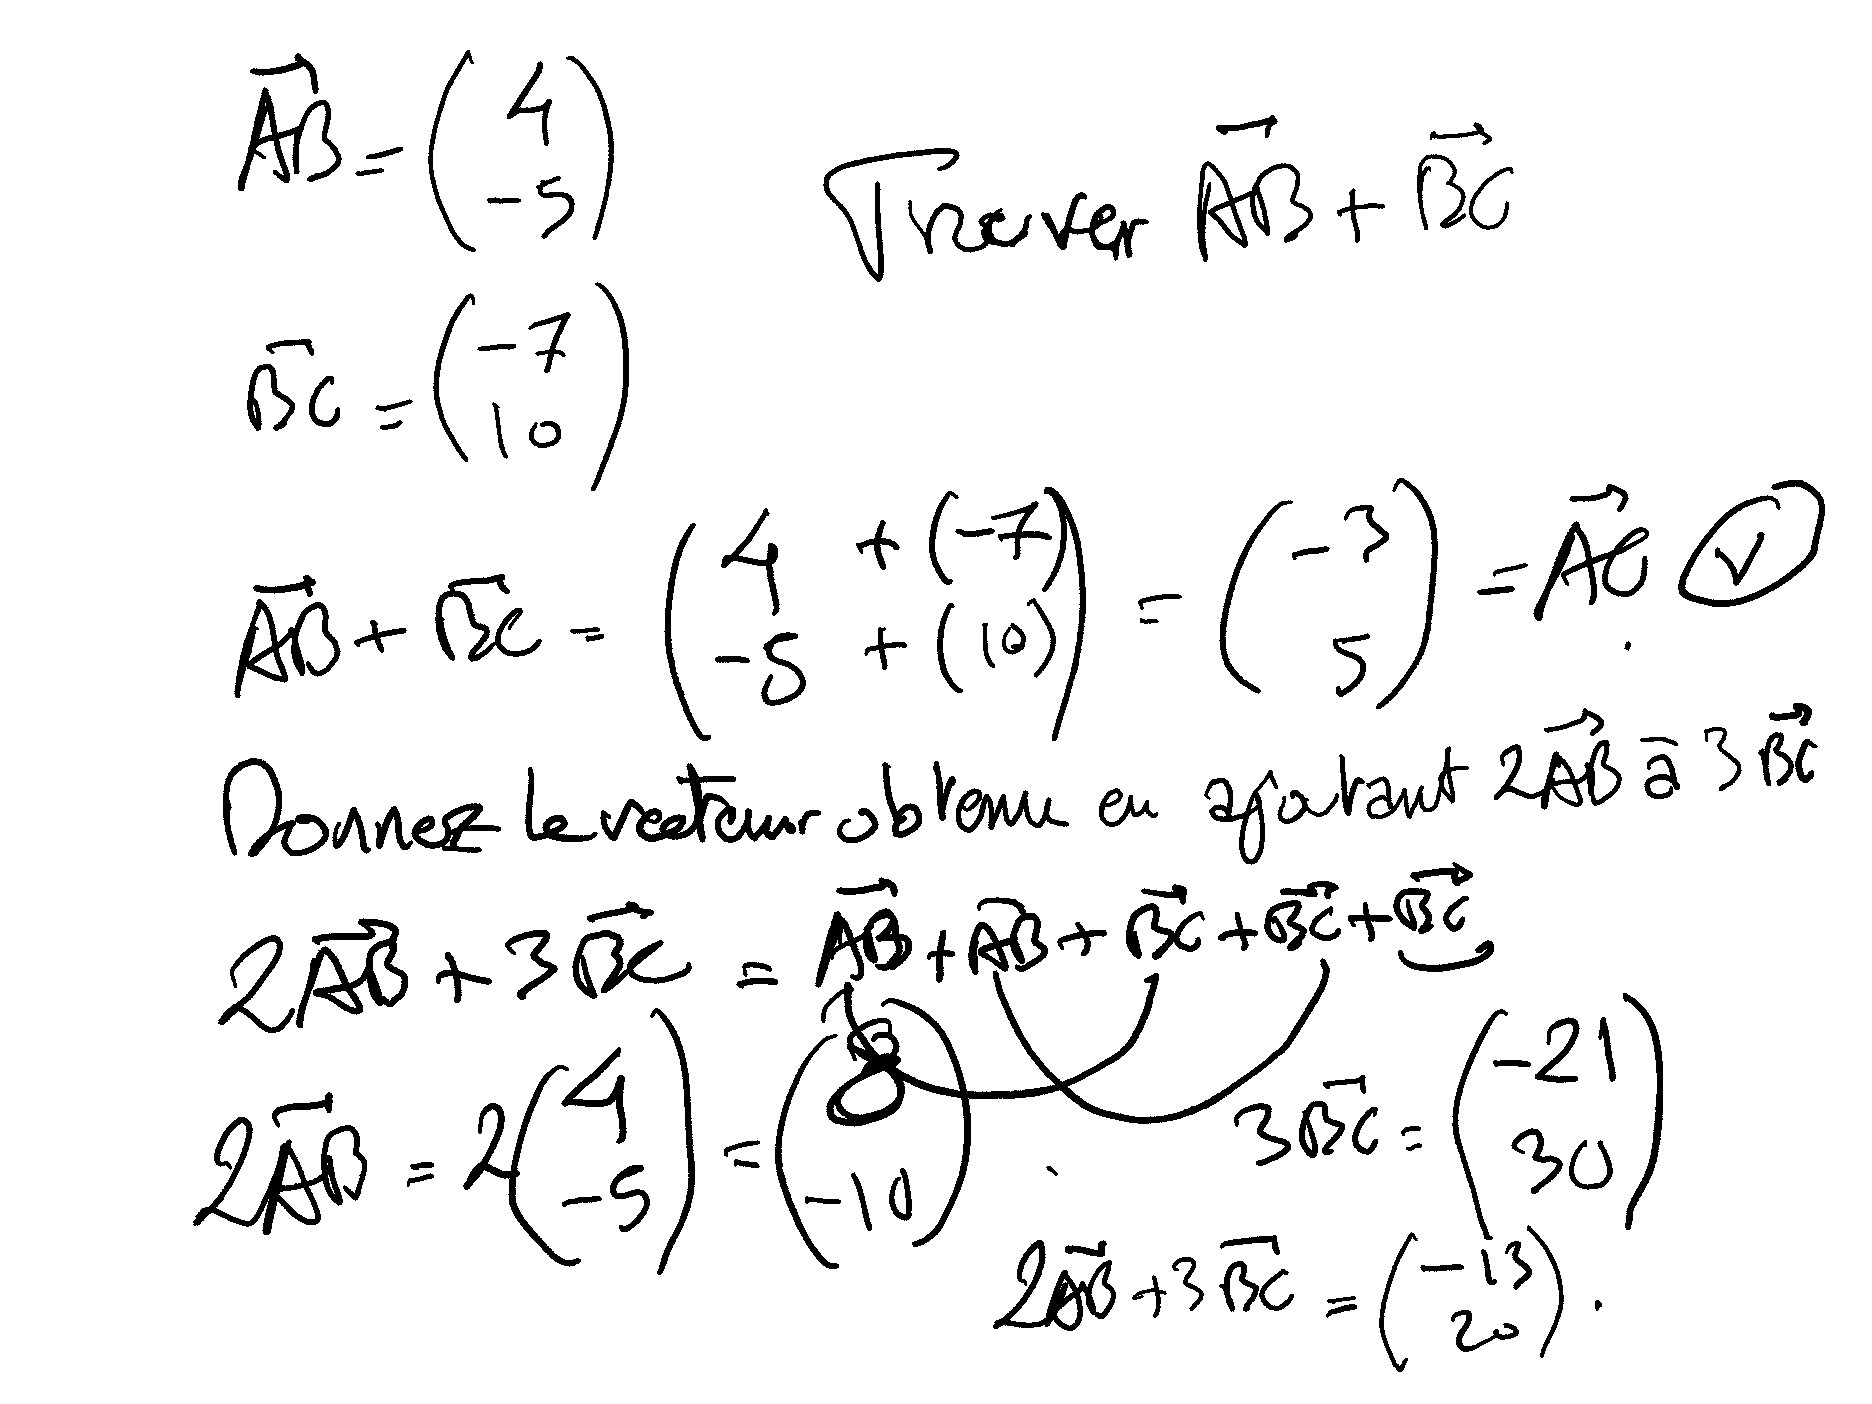 AB⃗ = (4
-5)
Trouver AB⃗ + BC⃗
BC⃗ = (-7
10)
AB⃗ + BC⃗ = (4 + (-7)
-5 + (10)) = (-3
5) = AC⃗ ✓
Donnez le vecteur obtenu en ajoutant 2AB⃗ à 3BC⃗
2AB⃗ + 3BC⃗ = AB⃗ + AB⃗ + BC⃗ + BC⃗ + BC⃗
2AB⃗ = 2(4
-5) = (8
-10)
3BC⃗ = (-21
30)
2AB⃗ + 3BC⃗ = (-13
20).